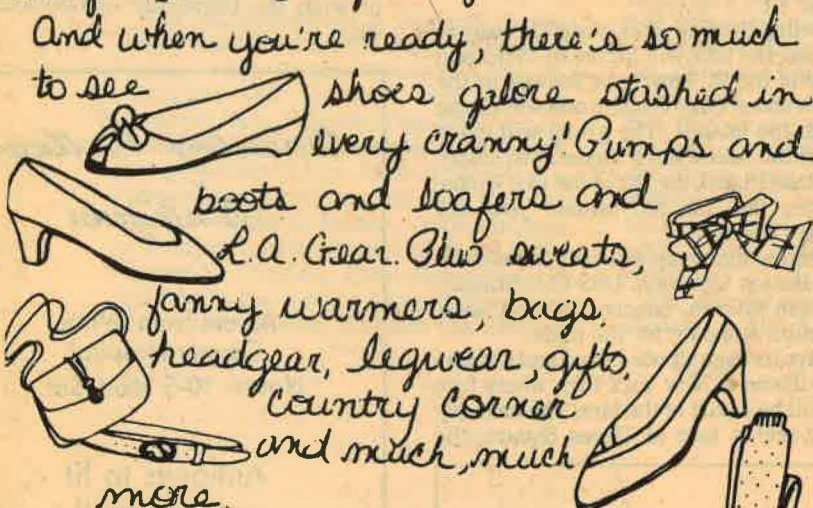 And when you're ready, there's so much
to see shoes galore stashed in
every cranny! Pumps and
boots and loafers and
L.A. Gear. Plus sweats,
fanny warmers, bags
headgear, legwear, gifts,
country corner
and much, much
more.